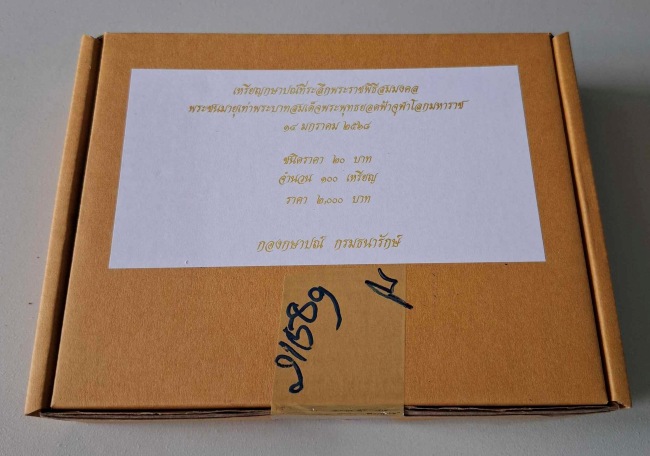 เหรียญกษาปณ์ที่ระลึกพระราชพิธีสมมงคล
พระชนมายุเท่าพระบาทสมเด็จพระพุทธยอดฟ้าจุฬาโลกมหาราช
๑๔ มกราคม ๒๕๖๘
ชนิดราคา ๒๐ บาท
จำนวน ๑๐๐ เหรียญ
ราคา ๒,๐๐๐ บาท
กองกษาปณ์ กรมธนารักษ์